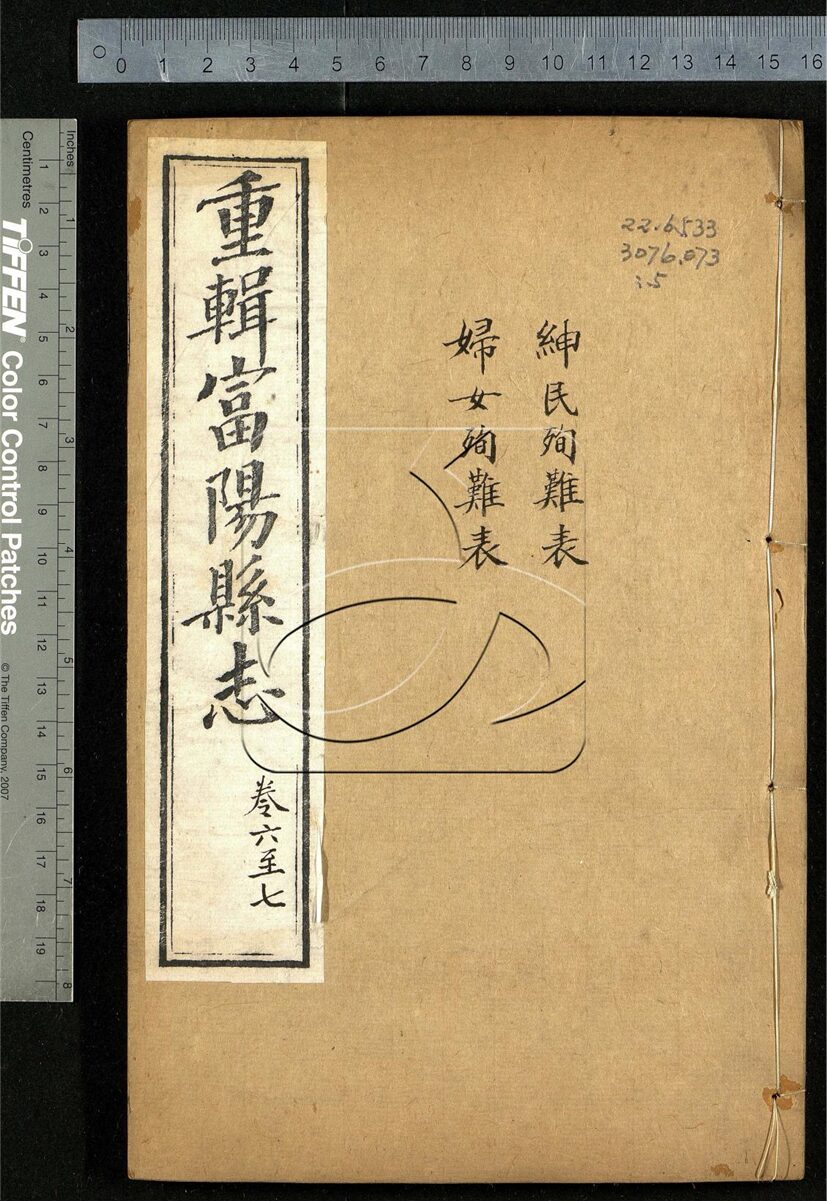 0 1 2 3 4 5 6 7 8 9 10 11 12 13 14 15 16
22.6533
3076.073
:5
紳民殉難表
婦女殉難表
重輯富陽縣志
卷六至七
Inches
1 2 3 4 5 6 7 8
Centimetres
1 2 3 4 5 6 7 8 9 10 11 12 13 14 15 16 17 18 19
TIFFEN® Color Control Patches
© The Tiffen Company, 2007